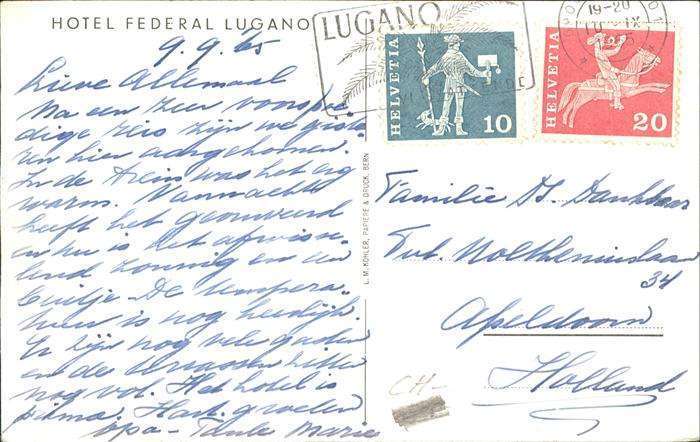 HOTEL FEDERAL LUGANO
9.9.65
Lieve Allemaal
Na een zeer voorspoe-
dige reis zijn we giste-
ren hier aangekomen.
In de trein was het erg
warm. Vannacht
heeft het geonweerd
en nu is het afwisse-
lend zonnig en een
buitje. De tempera-
tuur is nog heerlijk.
Er zijn nog vele gasten
en de terrassen zitten
nog vol. Het hotel is
prima. Hart. groeten
opa - Tante Marie
L. M. KOHLER, PAPIERE & DRUCK, BERN
LUGANO
HELVETIA
10
HELVETIA
20
19-20
Familie Ds. Dankbaar
34
Apeldoorn
Holland
CH-